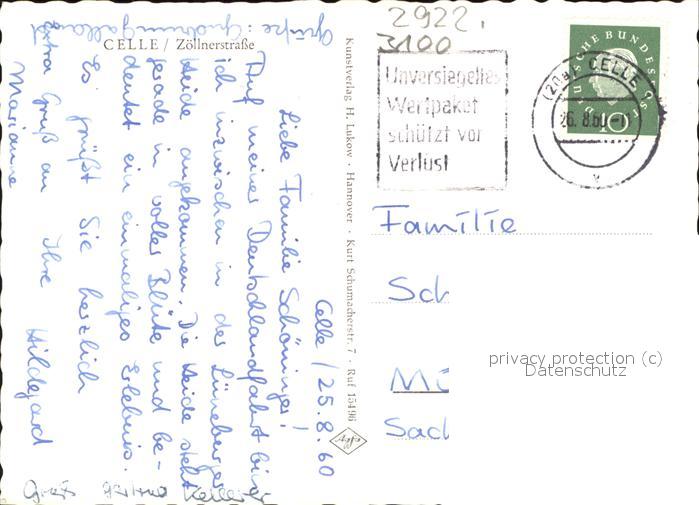 CELLE / Zöllnerstraße
Celle / 25.8.60
Liebe Familie Schöninger!
Auf meiner Deutschlandfahrt bin
ich inzwischen in der Lüneburger
Heide angekommen. Die Heide steht
gerade in voller Blüte und be-
deutet ein einmaliges Erlebnis.
Es grüßt Sie herzlich
Ihre Hildegard
Extra Gruß an
Marianne
Grüße
Kunstverlag H. Lukow · Hannover · Kurt Schumacherstr. 7 · Ruf 15496
Agfa
2922,
3100
Unversiegeltes
Wertpaket
schützt vor
Verlust
DEUTSCHE BUNDESPOST
10
(20a) CELLE
26.8.60
Familie
Sch
Mü
Sach
privacy protection (c)
Datenschutz